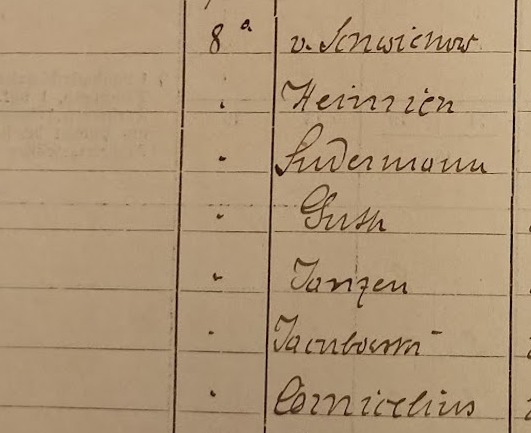 8a v. Schwichow
" Heinrich
" Sudermann
" Guth
" Janzen
" Jacubowski
" Cornicelius